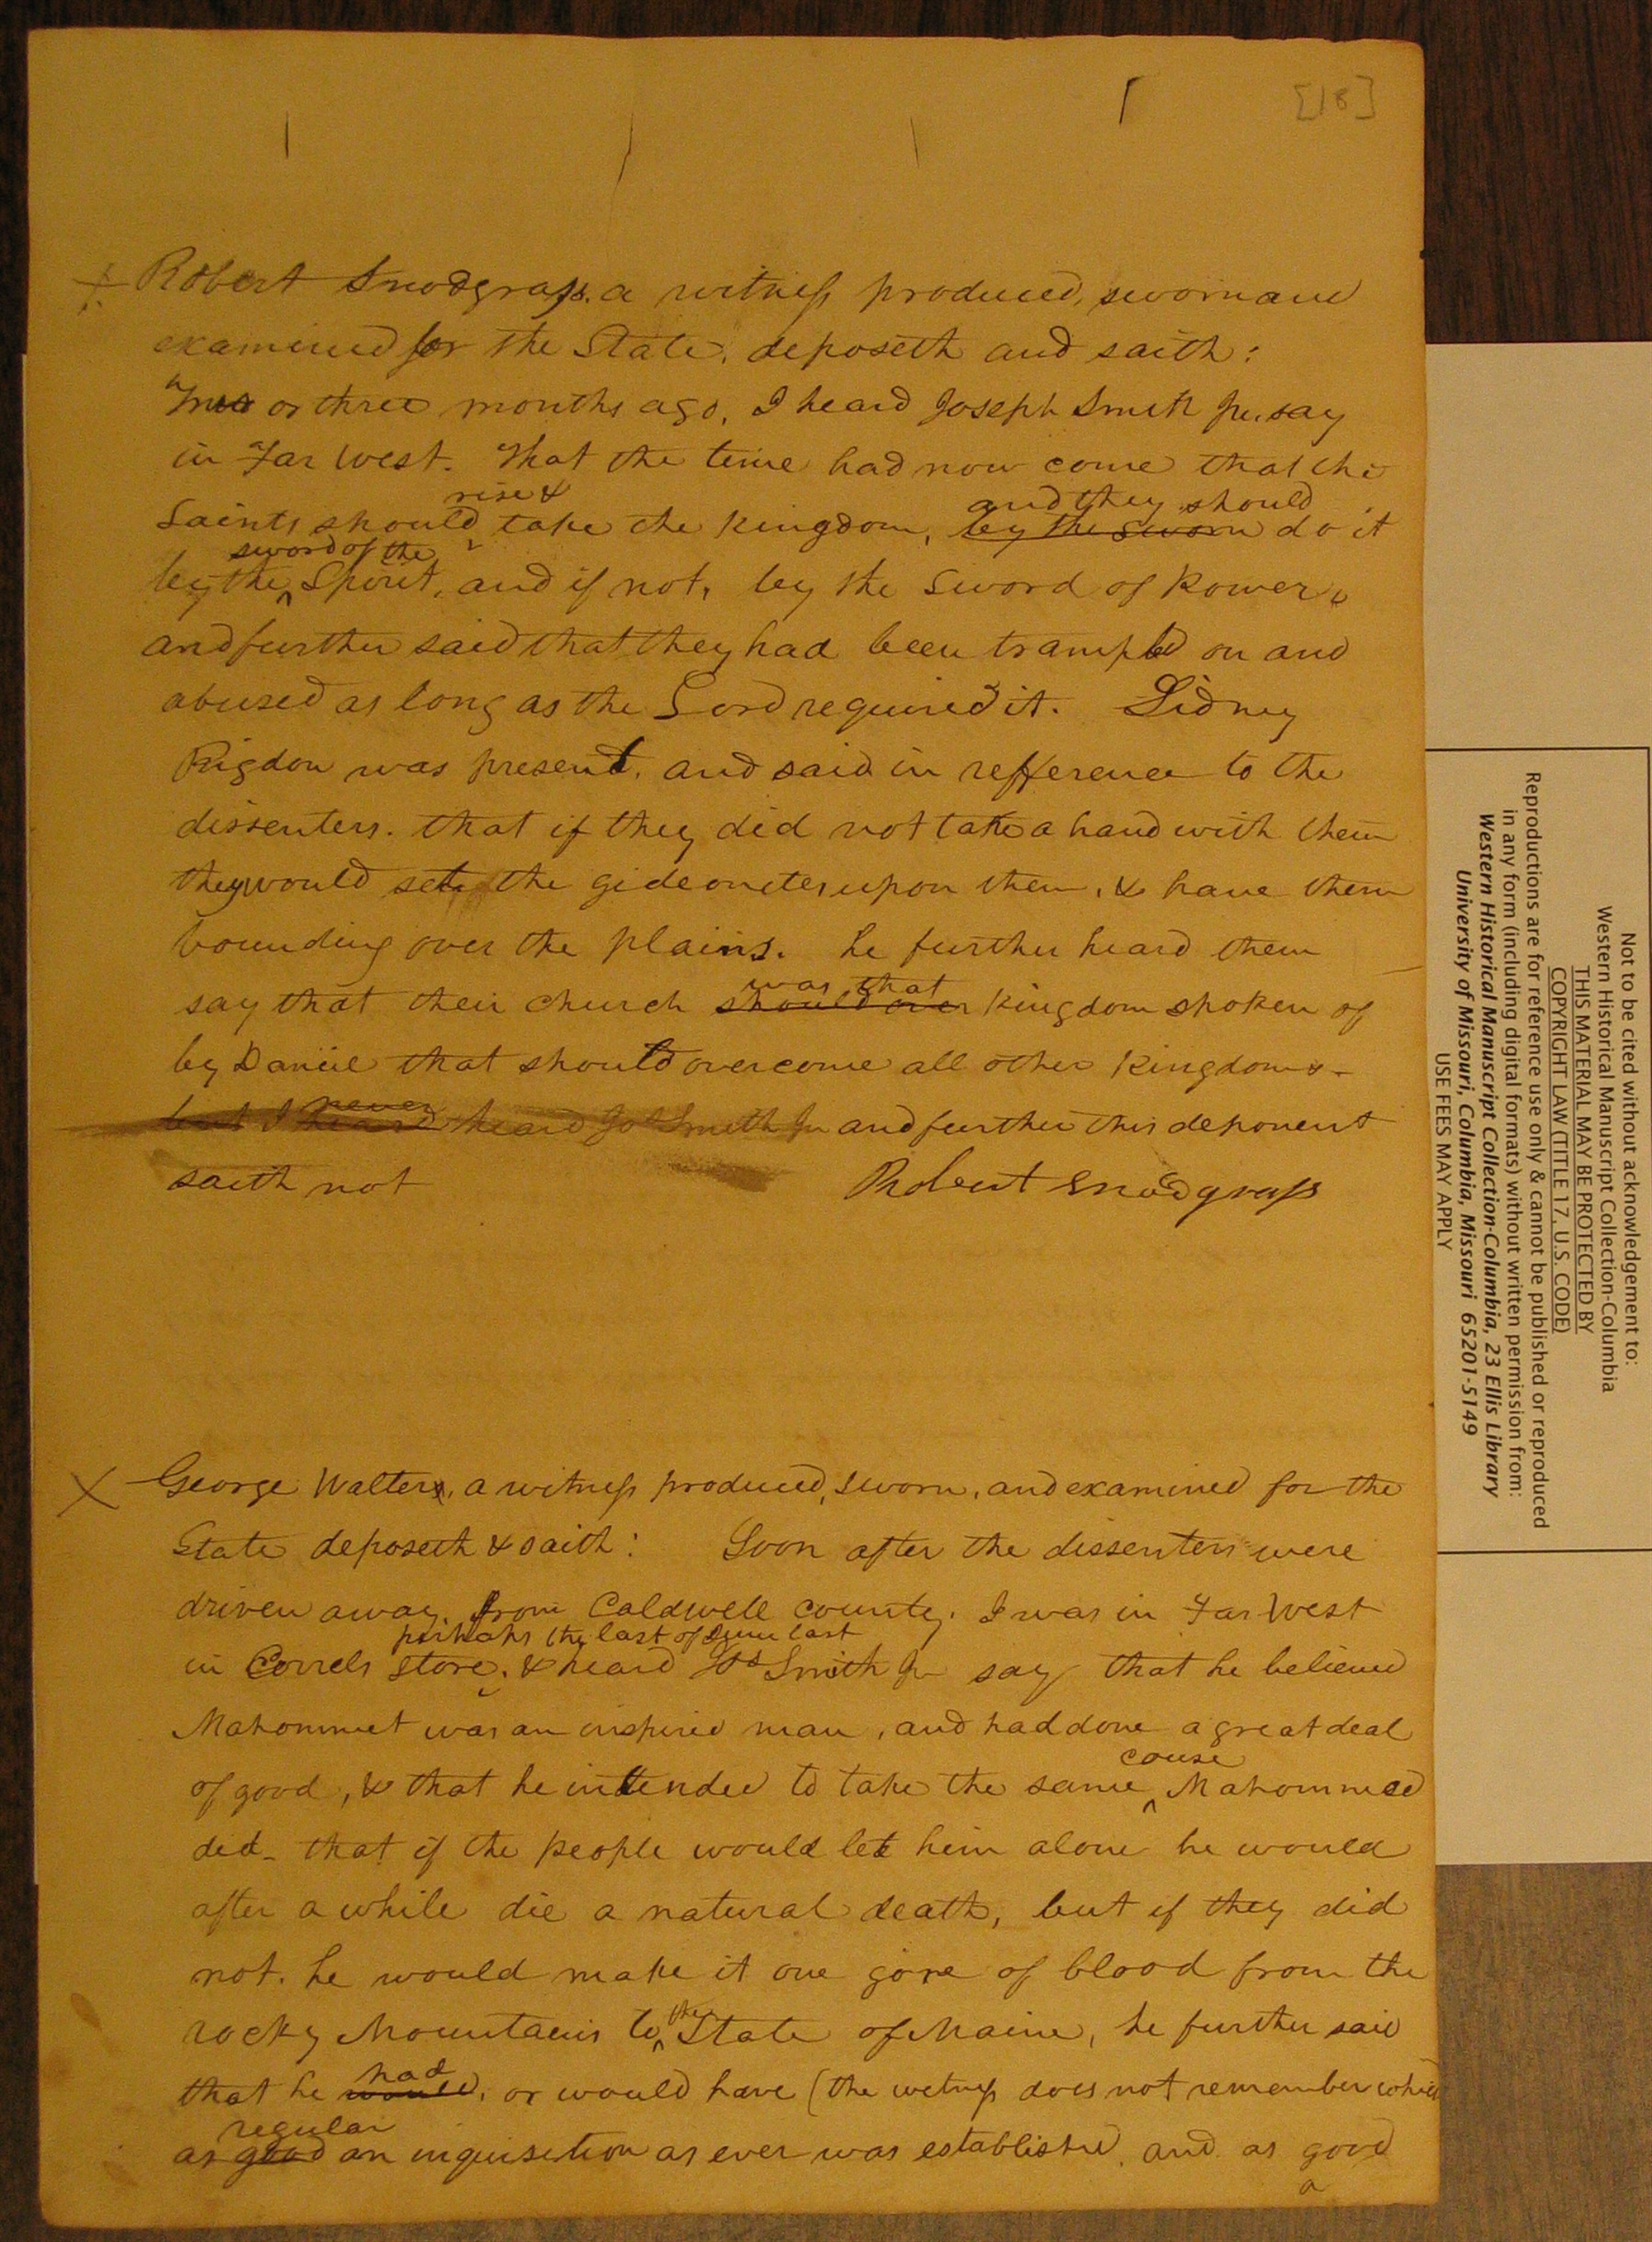 [18]
Robert Snodgrass, a witness produced, sworn and
examined for the State, deposeth and saith:
Two or three months ago, I heard Joseph Smith Jr. say
in Far West. That the time had now come that the
rise &
and they should
Saints should take the kingdom, by the sword do it
sword of the
by the Spirit, and if not, by the sword of Power,
and further said that they had been trampled on and
abused as long as the Lord required it. Sidney
Rigdon was present, and said in refference to the
dissenters. that if they did not take a hand with them
they would set the gideonites upon them, & have them
bounding over the plains. he further heard them
was that
say that their church should over kingdom spoken of
by Daniel that should overcome all other kingdoms -
never
but I heard heard Jos Smith Jr and further this deponent
saith not
Robert Snodgrass
X George Walter, a witness produced, sworn, and examined for the
State deposeth & saith: Soon after the dissenters were
driven away, from Caldwell county, I was in Far West
perhaps the last of June last
in Correls store, & heard Jos Smith Jr say that he believed
Mahommet was an inspired man, and had done a great deal
couse
of good, & that he intended to take the same Mahommed
did - that if the people would let him alone he would
after a while die a natural death, but if they did
not. he would make it one gore of blood from the
the
rocky Mountains to State of Maine, he further said
had
that he would, or would have (the witness does not remember which
regular
as good an inquisition as ever was established, and as good
a
Not to be cited without acknowledgement to:
Western Historical Manuscript Collection-Columbia
THIS MATERIAL MAY BE PROTECTED BY
COPYRIGHT LAW (TITLE 17, U.S. CODE)
Reproductions are for reference use only & cannot be published or reproduced
in any form (including digital formats) without written permission from:
Western Historical Manuscript Collection-Columbia, 23 Ellis Library
University of Missouri, Columbia, Missouri 65201-5149
USE FEES MAY APPLY